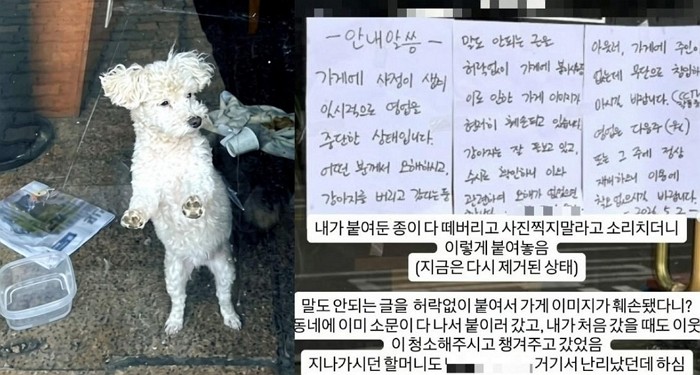 -안내말씀-
가게에 사정이 생겨
일시적으로 영업을
중단한 상태입니다.
어떤 분께서 오해하시고,
강아지를 버리고 갔다는 등
말도 안되는 글을
허락없이 가게에 붙이셨고
이로 인한 가게 이미지가
현저히 훼손되고 있습니다.
강아지는 잘 돌보고 있고,
수시로 확인하니 이와
관련하여 오해가 없으시면
아울러, 가게에 주인이
없는데 무단으로 침입하지
마시길 바랍니다. (CCTV
영업은 다음주
또는 그 주에 정상
재개하오니 이용에
착오 없으시길 바랍니다.
2026. 5. 2
내가 붙여둔 종이 다 떼버리고 사진찍지말라고 소리치더니
이렇게 붙여놓음
(지금은 다시 제거된 상태)
말도 안되는 글을 허락없이 붙여서 가게 이미지가 훼손됐다니?
동네에 이미 소문이 다 나서 붙이러 갔고, 내가 처음 갔을 때도 이웃
이 청소해주시고 챙겨주고 갔었음
지나가시던 할머니도 거기서 난리났던데 하심